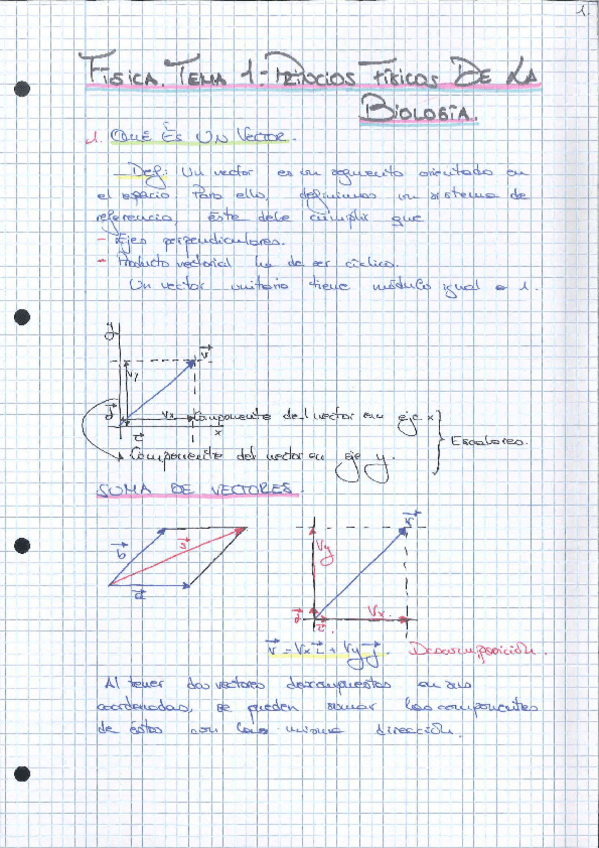 1.
FÍSICA. TEMA 1.- PRINCIOS FÍSICOS DE LA
BIOLOGÍA.
1. QUÉ ES UN VECTOR.
- Def: Un vector es un segmento orientado en
el espacio. Para ello, definimos un sistema de
referencia, éste debe cumplir que
- Ejes perpendiculares.
- Producto vectorial ha de ser cíclico.
Un vector unitario tiene módulo igual a 1.
y
v
Vy
j
Vx Componente del vector en eje x
i x
Escalares.
Componente del vector en eje y.
SUMA DE VECTORES.
b s
a
v
Vy
Vx
j
i
v = Vx i + Vy j. Descomposición.
Al tener dos vectores descompuestos en sus
coordenadas, se pueden sumar las componentes
de éstos con la misma dirección.